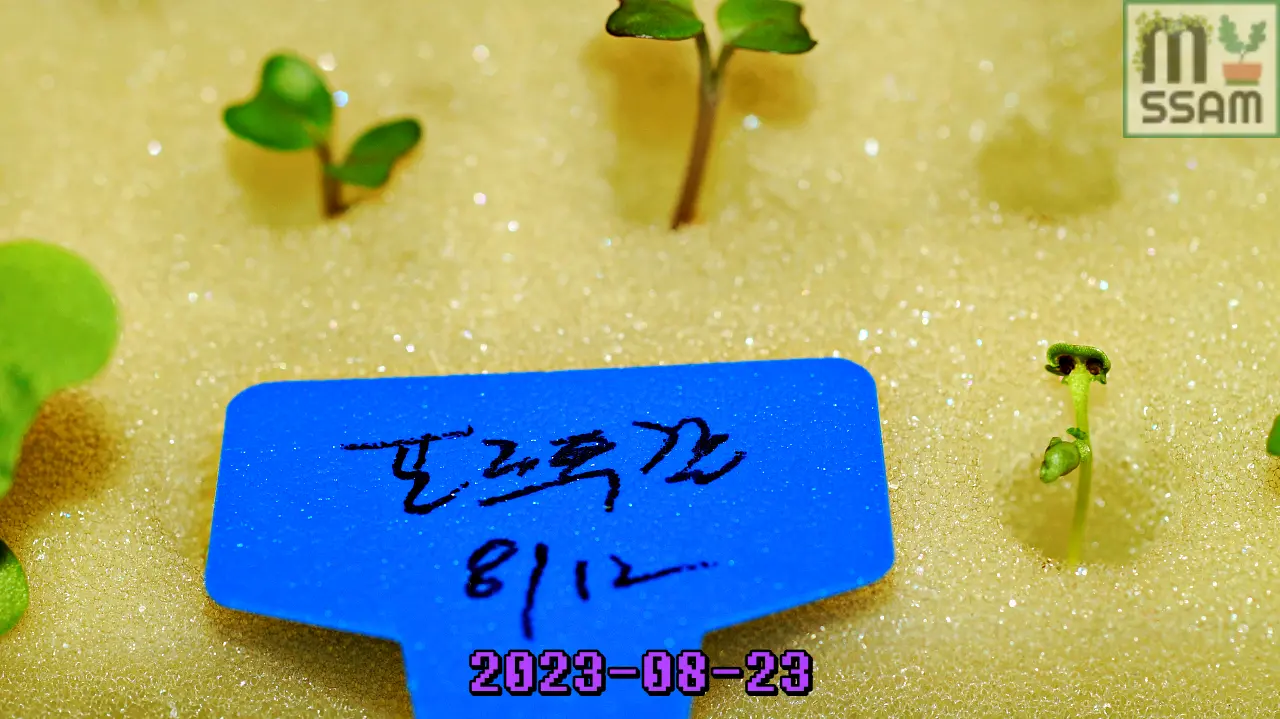 m
SSAM
포르투갈
8/12
2023-08-23